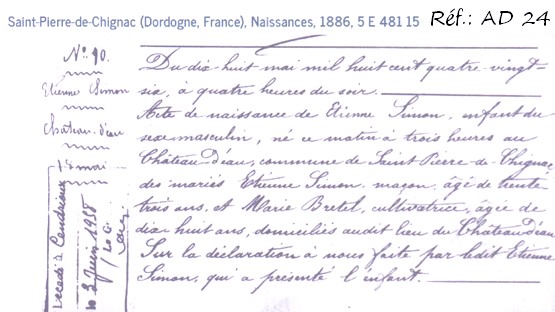 Saint-Pierre-de-Chignac (Dordogne, France), Naissances, 1886, 5 E 481 15
Réf.: AD 24
N° 90.
Etienne Simon
Chateau-d'eau
18 mai
Décédé à Cendrieux
le 3 Juin 1958
Du dix-huit mai mil huit cent quatre-vingt-
six, à quatre heures du soir.
Acte de naissance de Etienne Simon, enfant du
sexe masculin, né ce matin à trois heures au
Château-D'eau, commune de Saint Pierre-de-Chignac,
des mariés Etienne Simon, maçon, âgé de trente
trois ans, et Marie Bretel, cultivatrice, âgée de
dix-huit ans, domiciliés audit lieu du Château-d'eau
Sur la déclaration à nous faite par ledit Etienne
Simon, qui a présenté l'enfant.